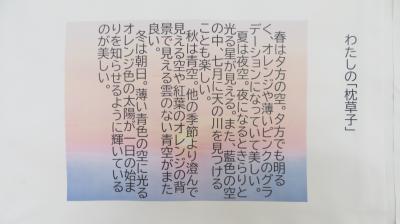 わたしの「枕草子」
春は夕方の空。夕方でも明る
く、オレンジや薄いピンクのグラ
デーションになっていて美しい。
夏は夜空。夜になるときらりと
光る星が見える。また、藍色の空
の中、七月に天の川を見つける
ことも楽しい。
秋は青空。他の季節より澄んで
見える空や紅葉のオレンジの背
景で見える雲のない青空がまた
良い。
冬は朝日。薄い青色の空に光る
オレンジ色の太陽が一日の始ま
りを知らせるように輝いている
のが美しい。